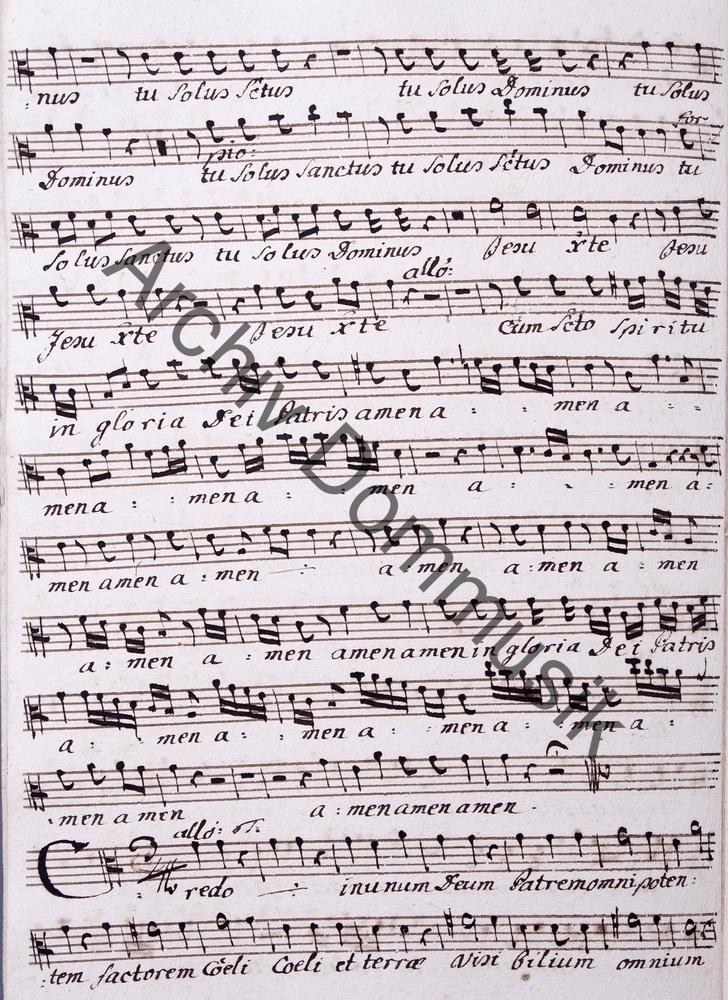 : nus tu Solus Sc̄tus tu Solus Dominus tu Solus
for
Dominus pio: tu Solus Sanctus tu Solus Sc̄tus Dominus tu
Solus Sanctus tu Solus Dominus Jesu x̄te Jesu
allō:
Jesu x̄te Jesu x̄te Cum Sc̄to Spiritu
in gloria Dei Patris amen a : : men a : :
men a : : men a : men a : : men a :
men amen a : men ÷ a : men a : men a : men
a : men a : men amen amen in gloria Dei Patris
a : : men a : men a : men a : : men a :
: men a men a : men amen amen .
allō:
Credo ÷ in unum Deum Patrem omnipoten :
: tem factorem Coeli Coeli et terræ Visi bilium omnium
Archiv Dommusik